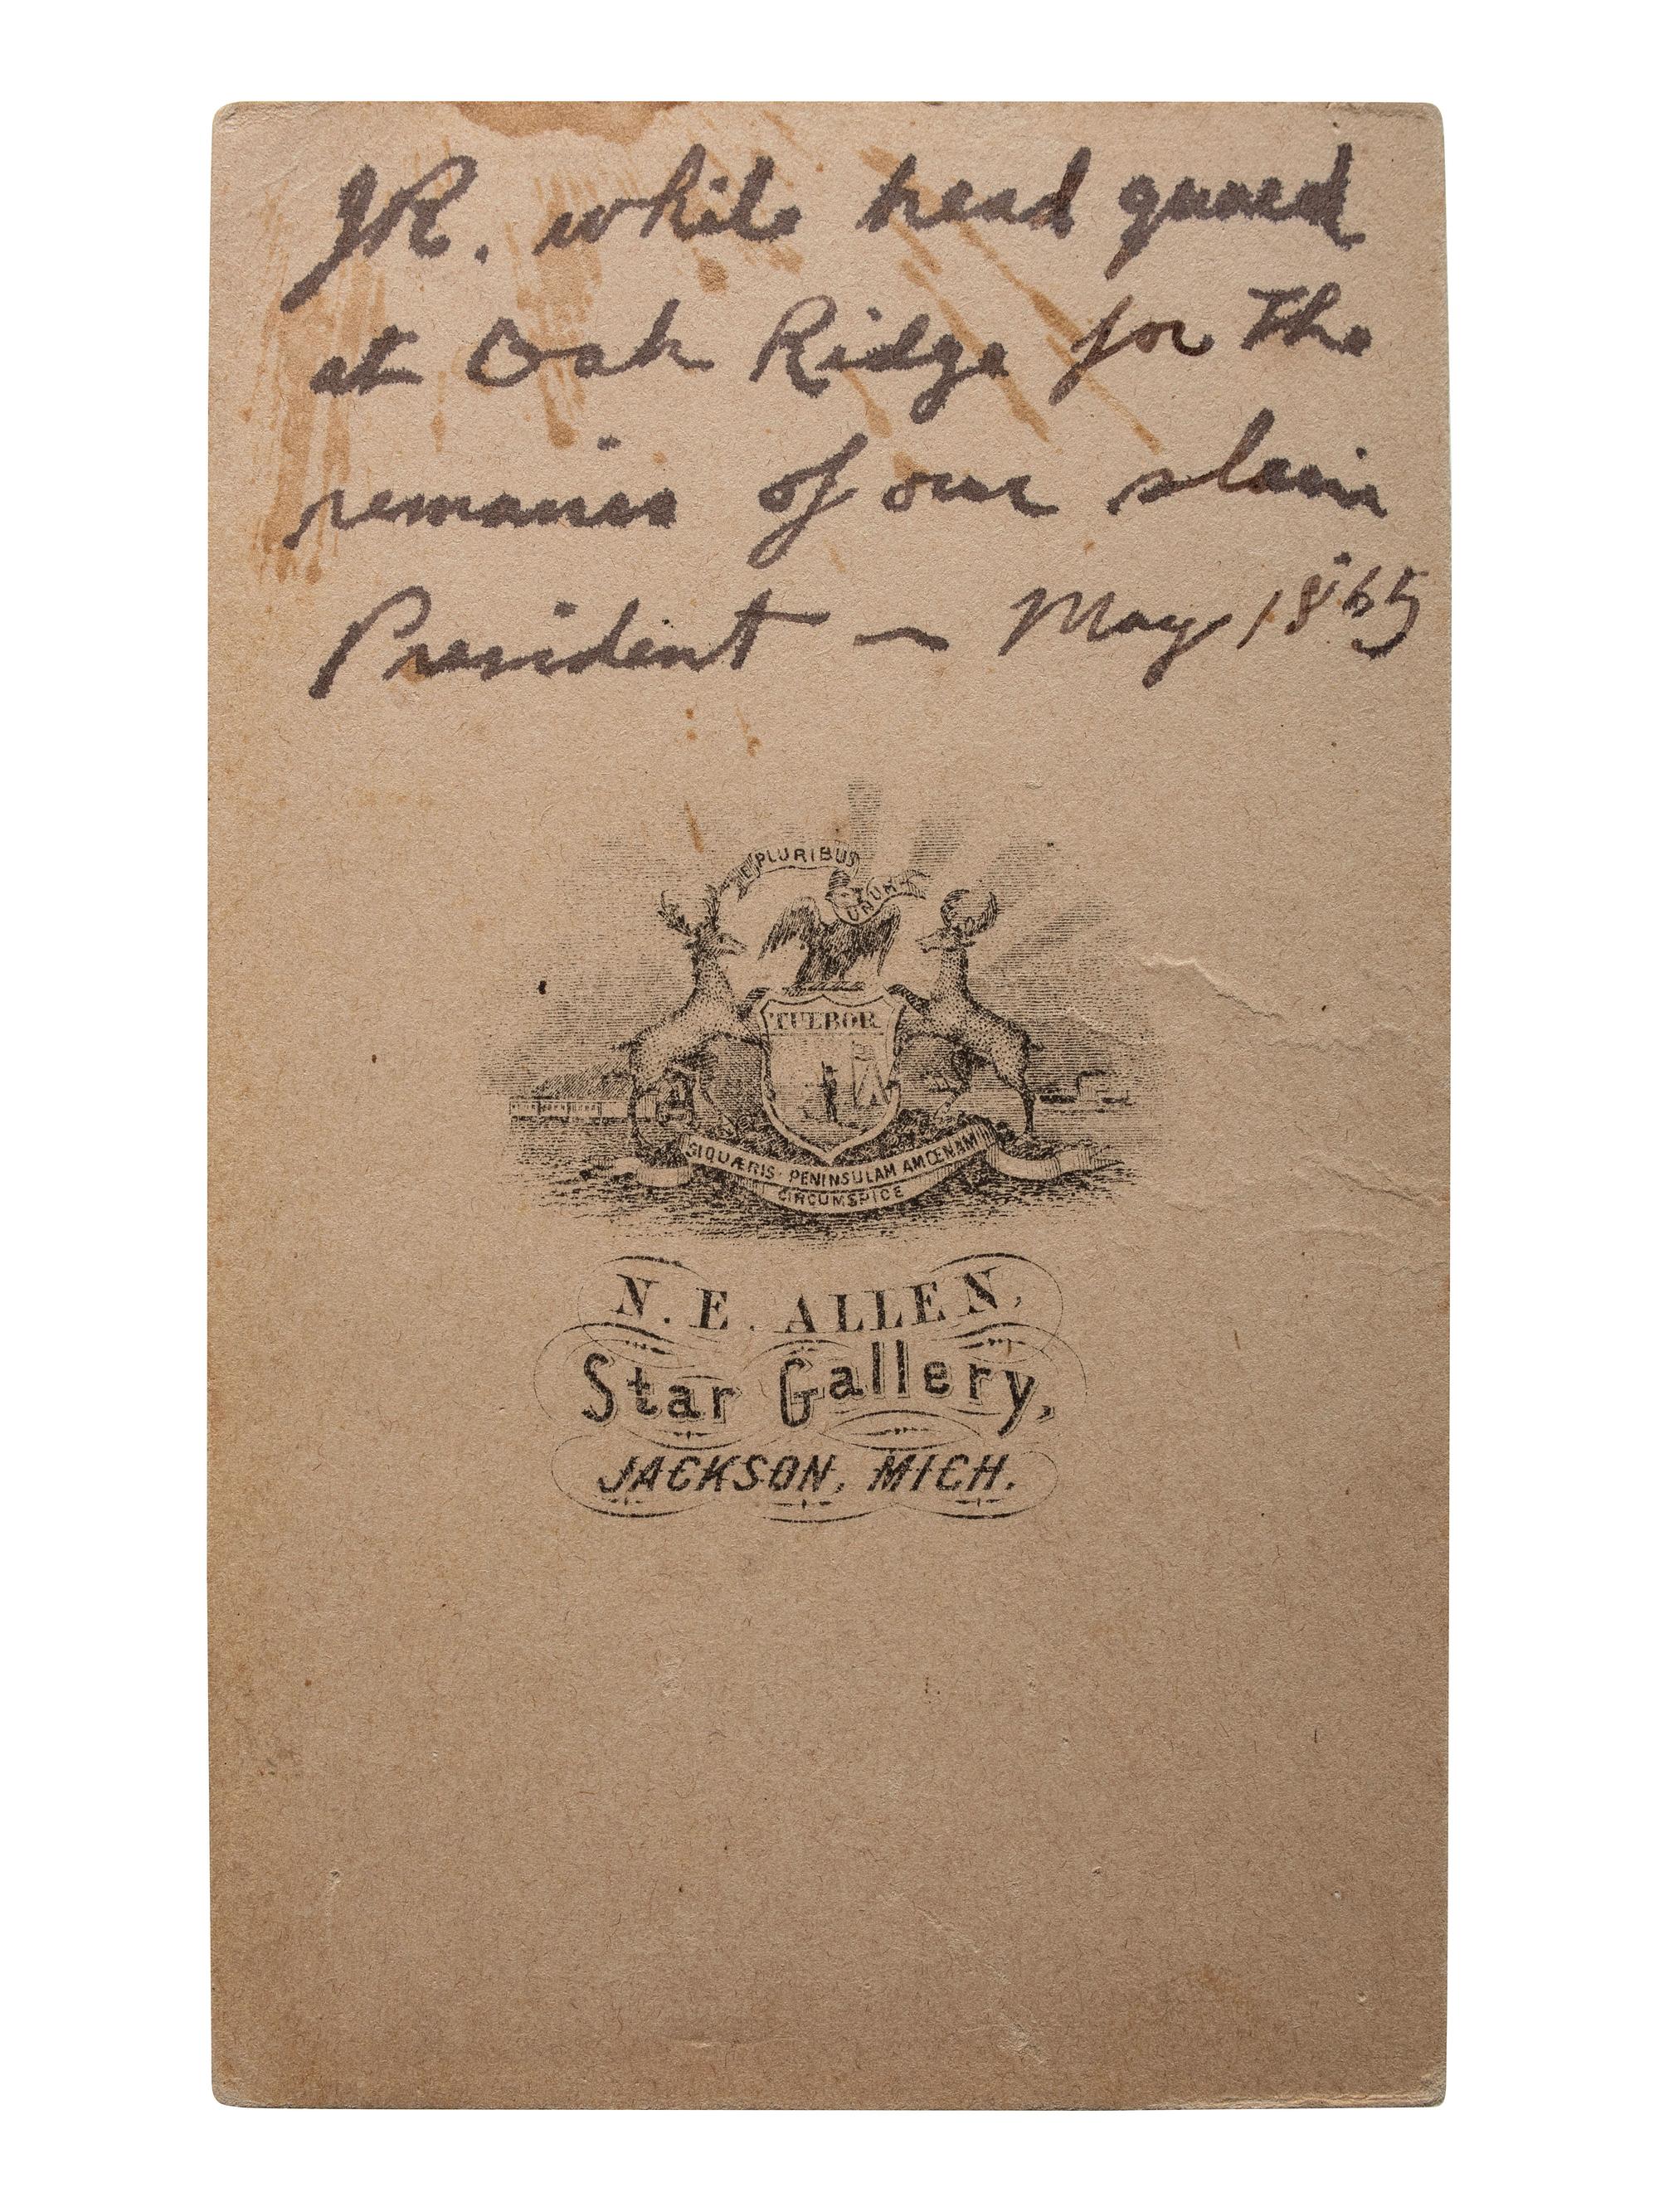 JR. while head guard
at Oak Ridge for the
remains of our slain
President — May 1865
E PLURIBUS UNUM
TUEBOR
SI QUÆRIS PENINSULAM AMŒNAM
CIRCUMSPICE
N. E. ALLEN,
Star Gallery,
JACKSON, MICH.